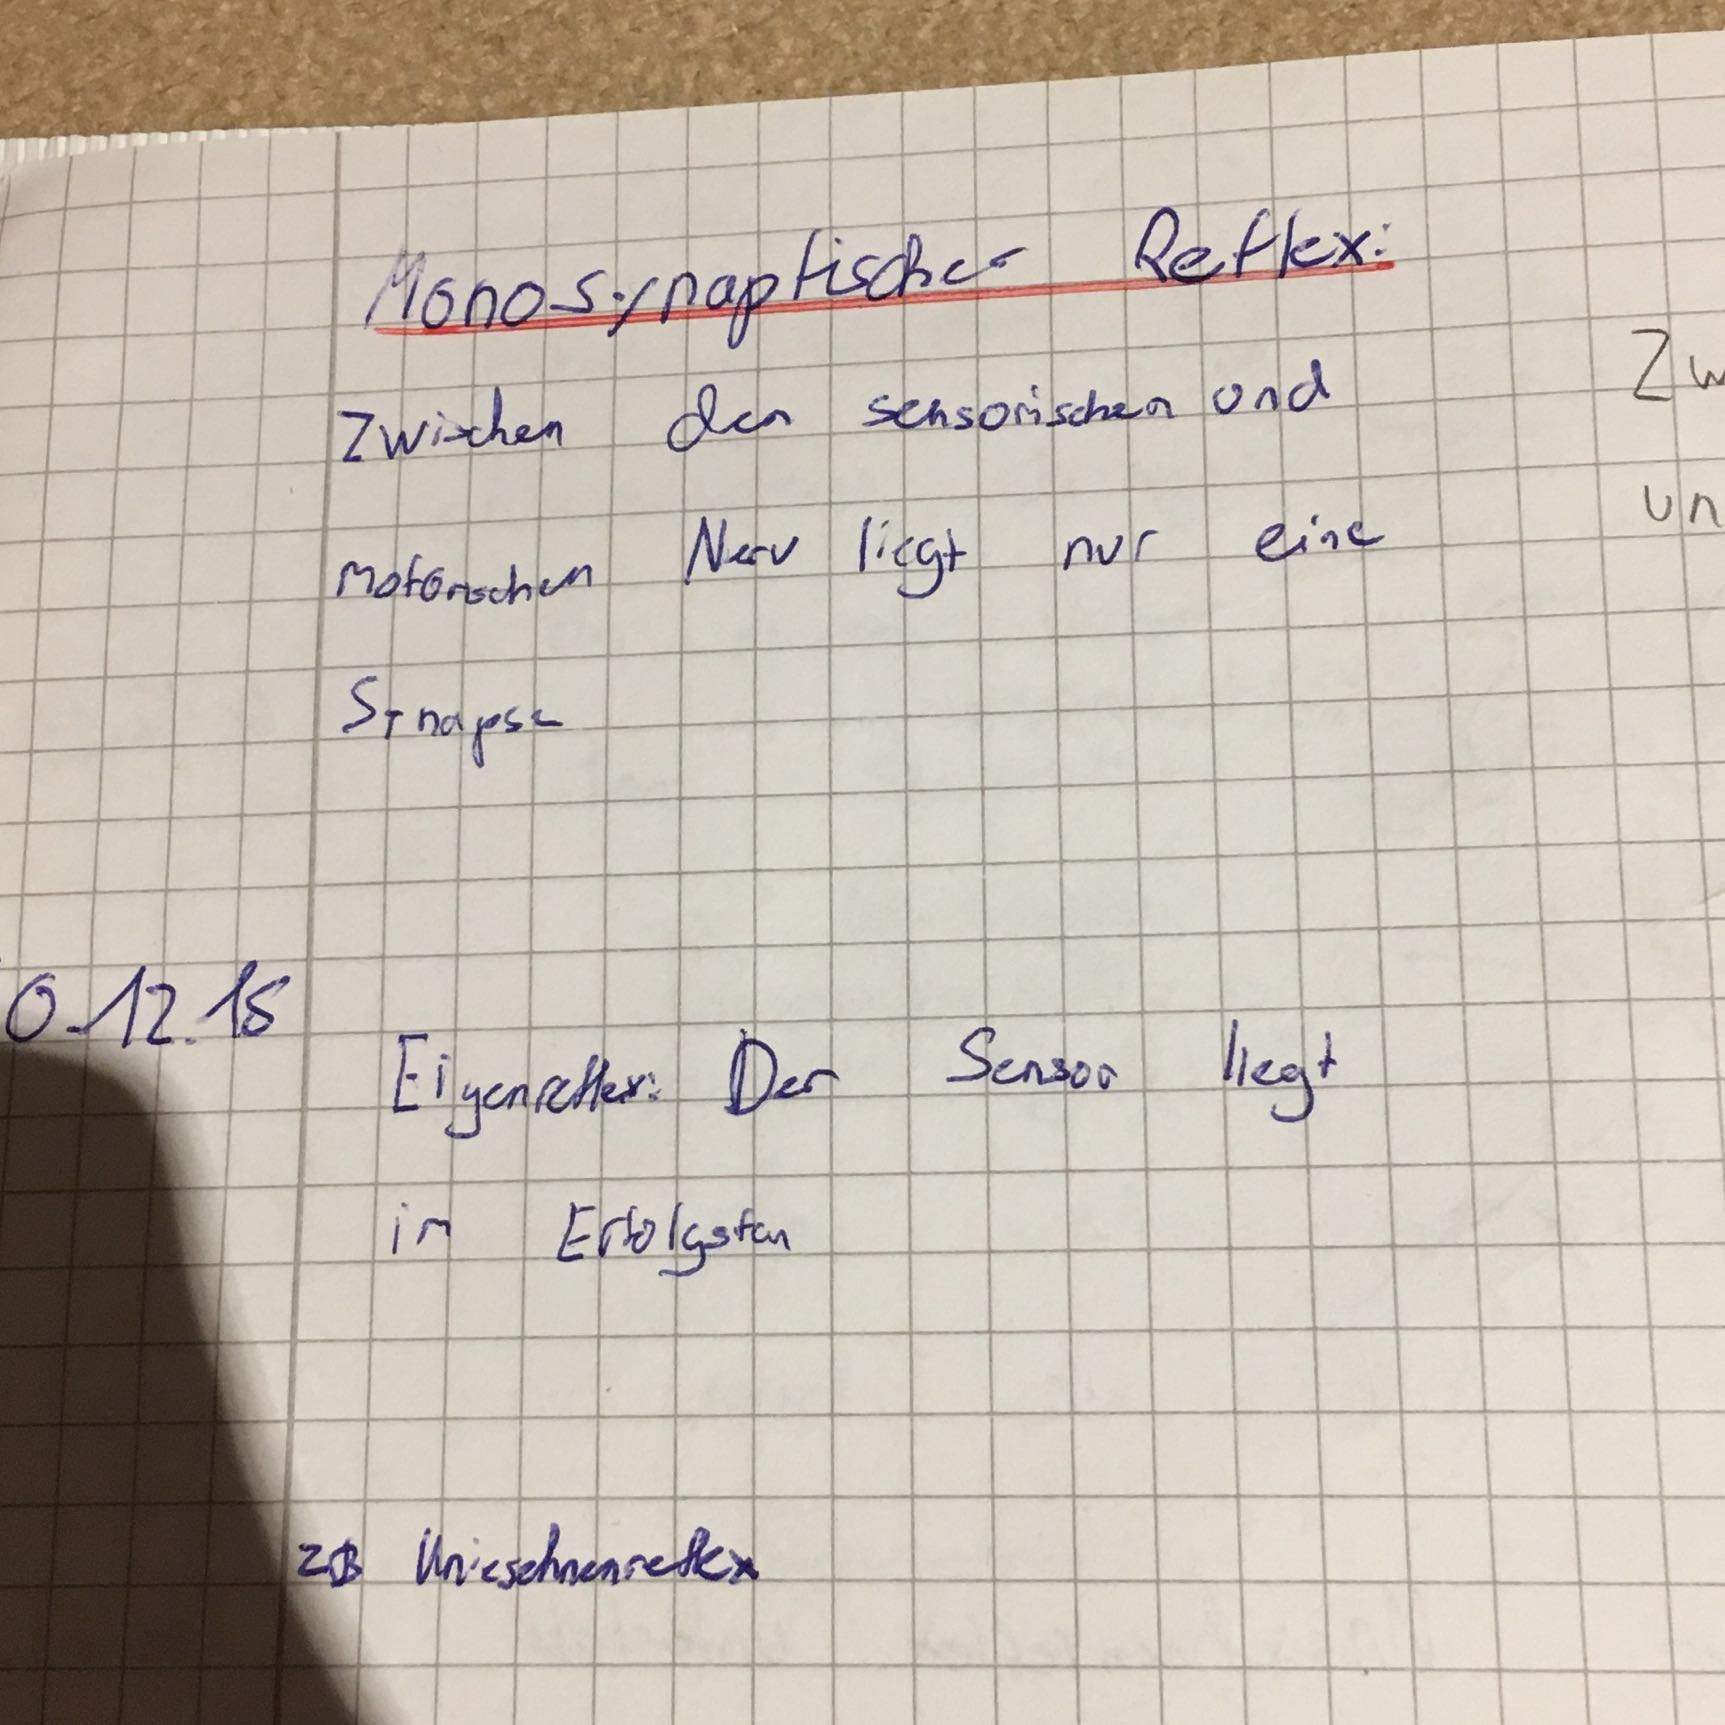 Monosynaptischer Reflex:
Zwischen den sensorischen und
Zw
motorischen Nerv liegt nur eine
un
Synapse
0.12.18
Eigenreflex: Der Sensor liegt
im Erfolgsfan
zB Kniesehnenreflex